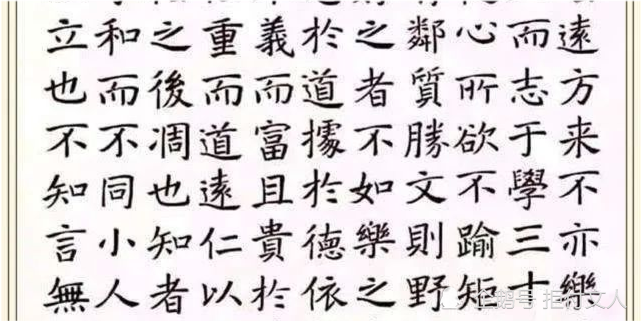 遠方来不亦樂
而志于學三十
心所欲不踰矩
鄰質勝文則野
之者不如樂之
於道據於德依
義而富且貴於
重而道遠仁以
之後凋也知者
和而不同小人
立也不知言無
企鹅号